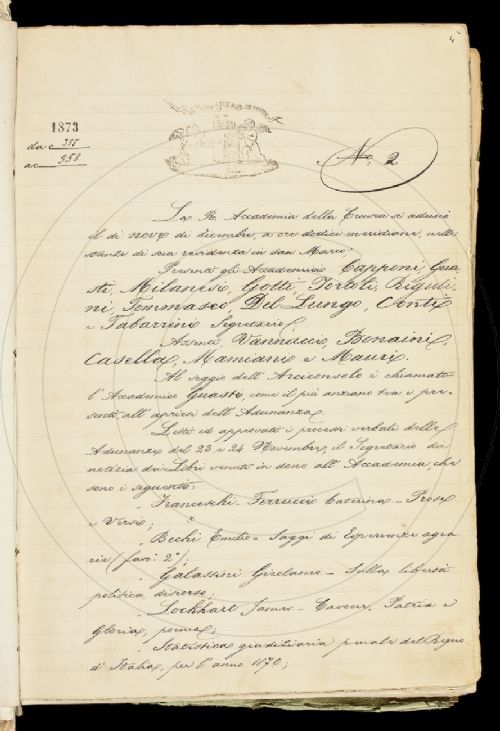 4
1873
da c 355
a c 358
No. 2
La R. Accademia della Crusca si adunò
il dì nove di dicembre, a ore dodici meridiane, nelle
stanze di sua residenza in San Marco.
Presenti gli Accademici Capponi, Gua-
sti, Milanesi, Gotti, Tortoli, Riguti-
ni, Tommaseo, Del Lungo, Conti
e Tabarrini Segretario;
Assenti, Vannucci, Bonaini,
Casella, Mamiani e Mauri.
Al seggio dell'Arciconsolo è chiamato
l'Accademico Guasti, come il più anziano tra i pre-
senti all'aprirsi dell'Adunanza.
Letti ed approvati i processi verbali delle
Adunanze del 23 e 24 Novembre, il Segretario dà
notizia dei Libri venuti in dono all'Accademia, che
sono i seguenti:
Franceschi Ferrucci Caterina - Prose
e Versi;
Bechi Emilio - Saggi di Esperienze agra-
rie (fasc: 2º);
Galassini Girolamo - Sulla libertà
politica, discorso;
Lockhart James - Cavour, Patria e
Gloria, poema;
Statistica giudiziaria penale del Regno
d'Italia, per l'anno 1870;